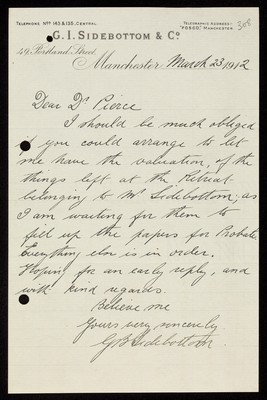 TELEPHONE Nos 143 & 135, CENTRAL.
TELEGRAPHIC ADDRESS:-
MANCHESTER.
308
G. I. SIDEBOTTOM & Co.
49, Portland Street,
Manchester, March 23 1912
Dear Dr Pierce
I should be much obliged
if you could arrange to let
me have the valuation, of the
things left at the Retreat
belonging to Mr Sidebottom; as
I am waiting for them to
fill up the papers for Probate.
Everything else is in order.
Hoping for an early reply, and
with kind regards.
Believe me
Yours very sincerely
Sidebottom